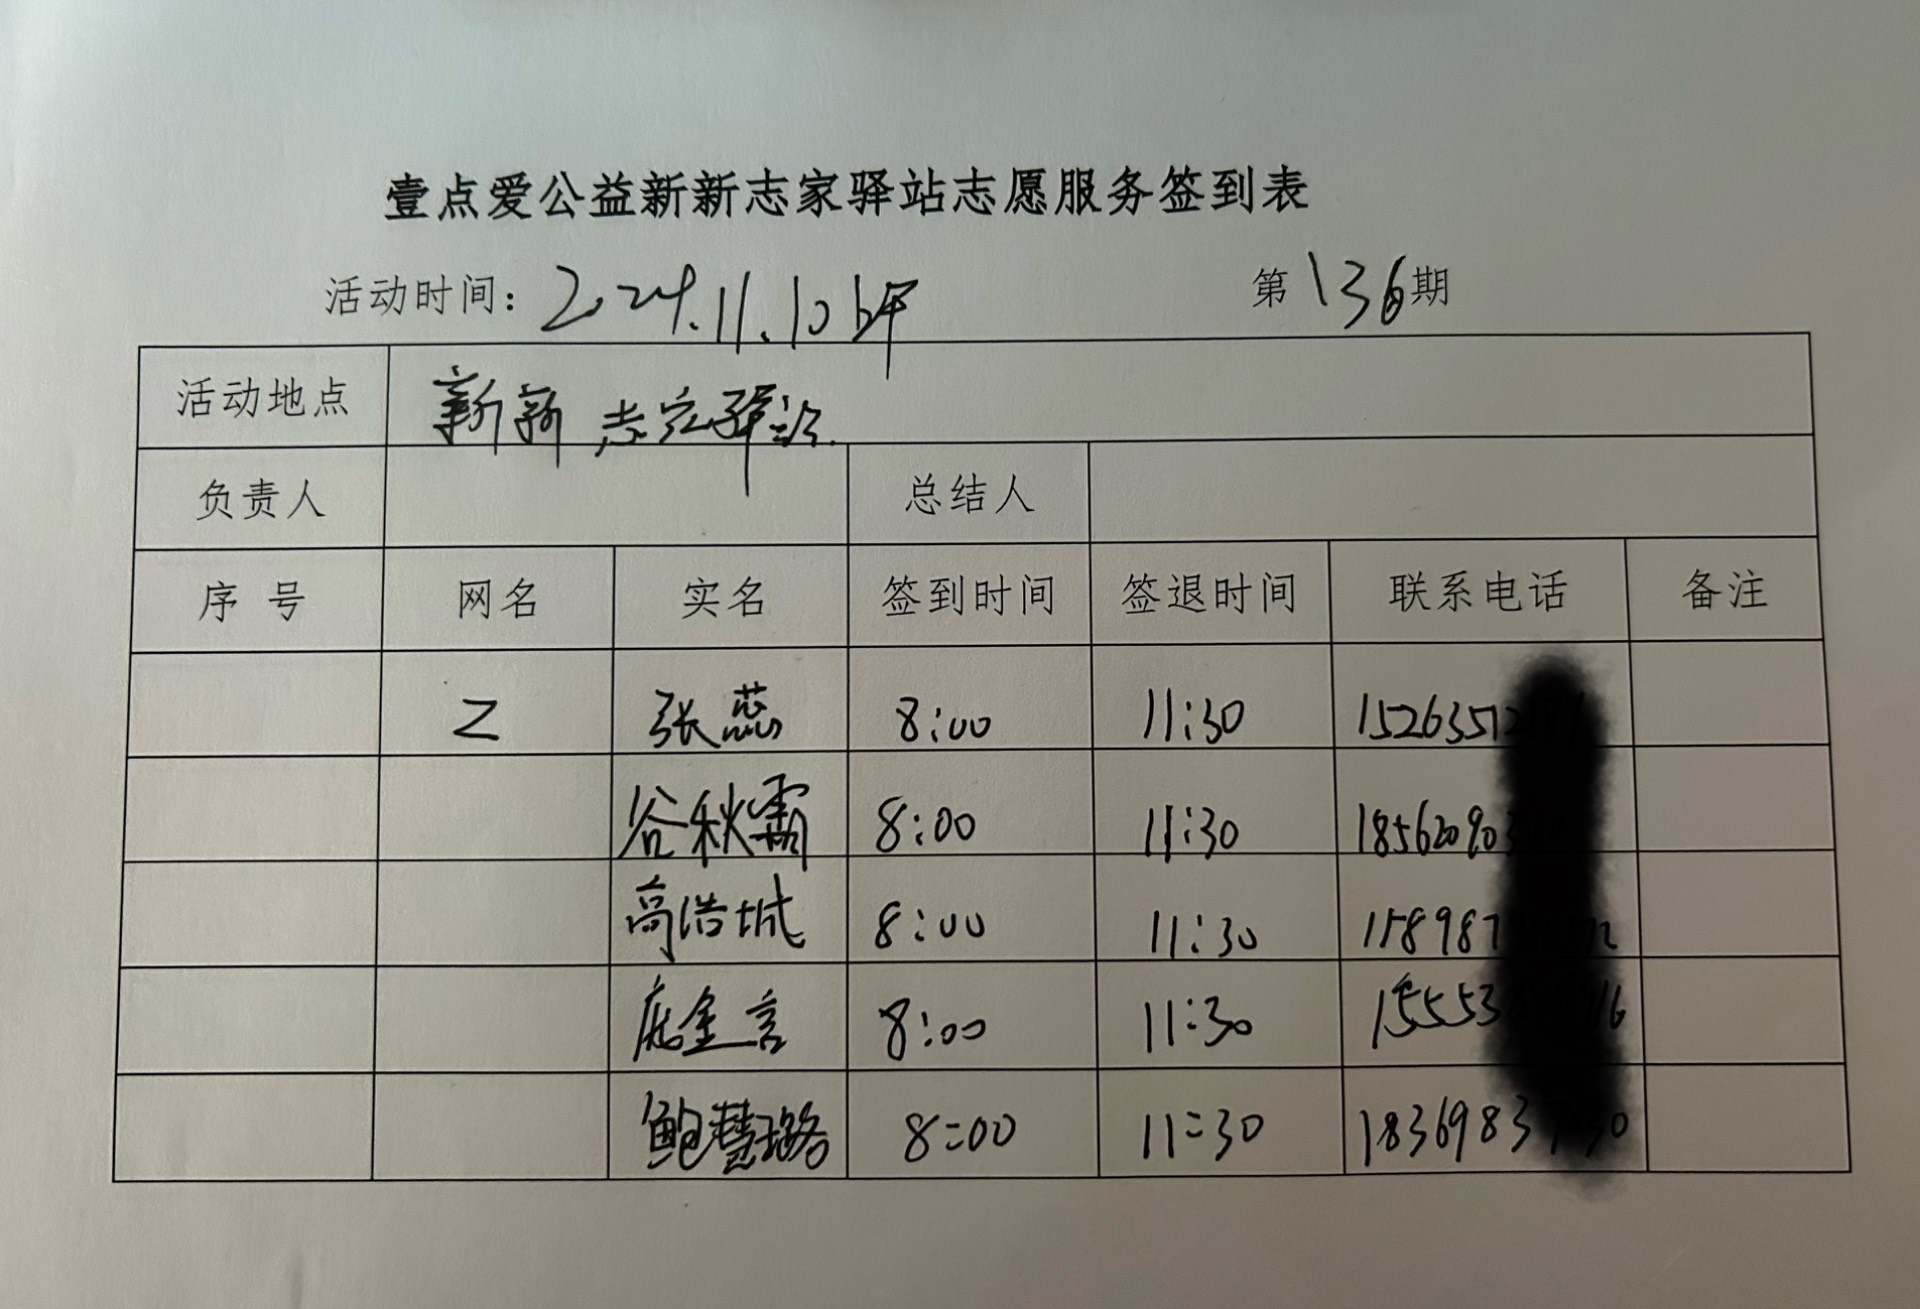 壹点爱公益新新志家驿站志愿服务签到表
活动时间：2024.11.10 第136期
活动地点 新新志家驿站
负责人 总结人
序号 网名 实名 签到时间 签退时间 联系电话 备注
乙 张蕊 8:00 11:30 1526357
谷秋霜 8:00 11:30 18562090
高浩城 8:00 11:30 158987
金言 8:00 11:30 15553
鲍慧璐 8:00 11:30 1836983